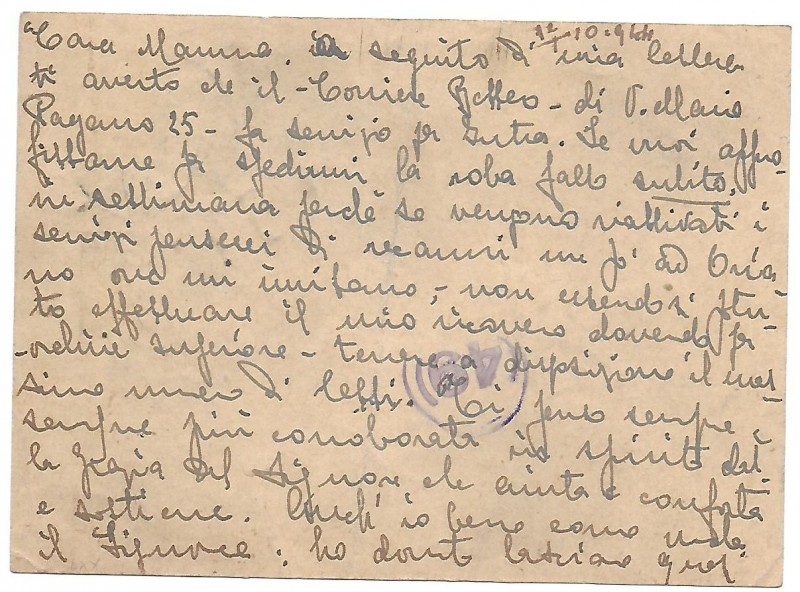 1º/10-944
Cara Mamma. in seguito di mia lettera
ti averto che il - Corriere - di V. Mario
Pagano 25 - fa servizio per Intra. Se vuoi appro-
fittarne per spedirmi la roba fallo subito,
in settimana perché se vengono riattivati i
servizi penserei di recarmi un po' ad
no ove mi invitano, - non essendosi potu-
to effettuare il mio ricovero dovendo per
-ordine superiore - tenere a disposizione il mas-
simo numero di letti. Ti penso sempre e
sempre più corroborata in spirito dal
la grazia del Signore che aiuta e conforta
e sostiene. Anch'io bene come vuole
il Signore: ho dovuto lasciare quel